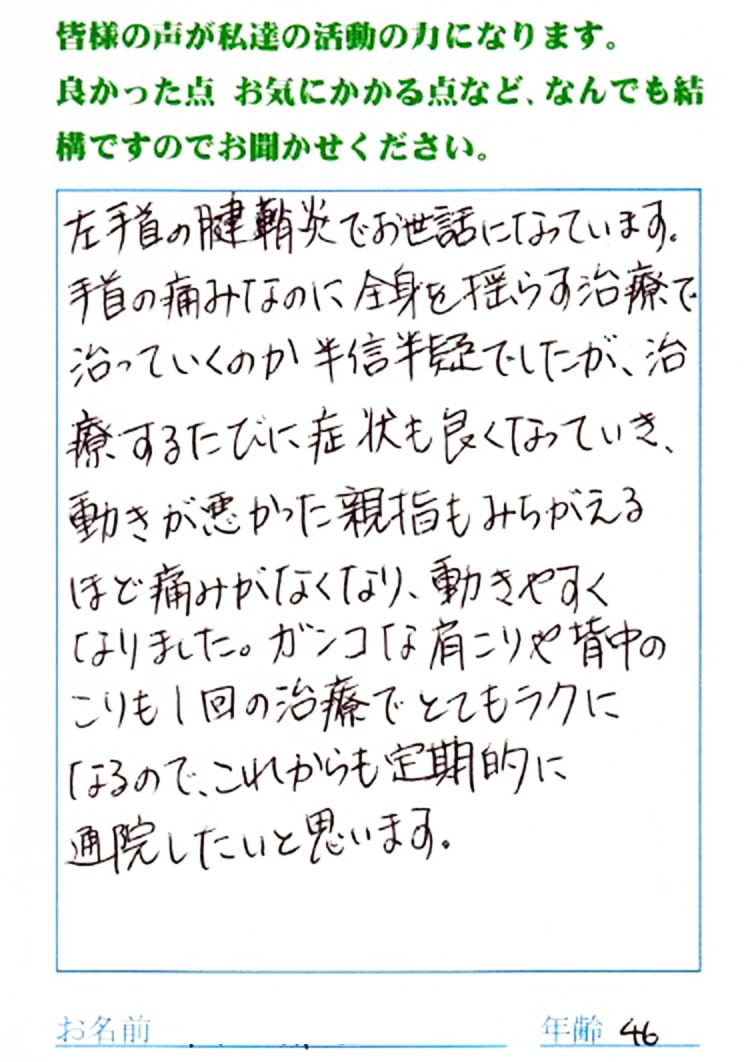 皆様の声が私達の活動の力になります。
良かった点 お気にかかる点など、なんでも結
構ですのでお聞かせください。
左手首の腱鞘炎でお世話になっています。
手首の痛みなのに全身を揺らす治療で
治っていくのか半信半疑でしたが、治
療するたびに症状も良くなっていき、
動きが悪かった親指もみちがえる
ほど痛みがなくなり、動きやすく
なりました。ガンコな肩こりや背中の
こりも1回の治療でとてもラクに
なるので、これからも定期的に
通院したいと思います。
お名前 年齢 46